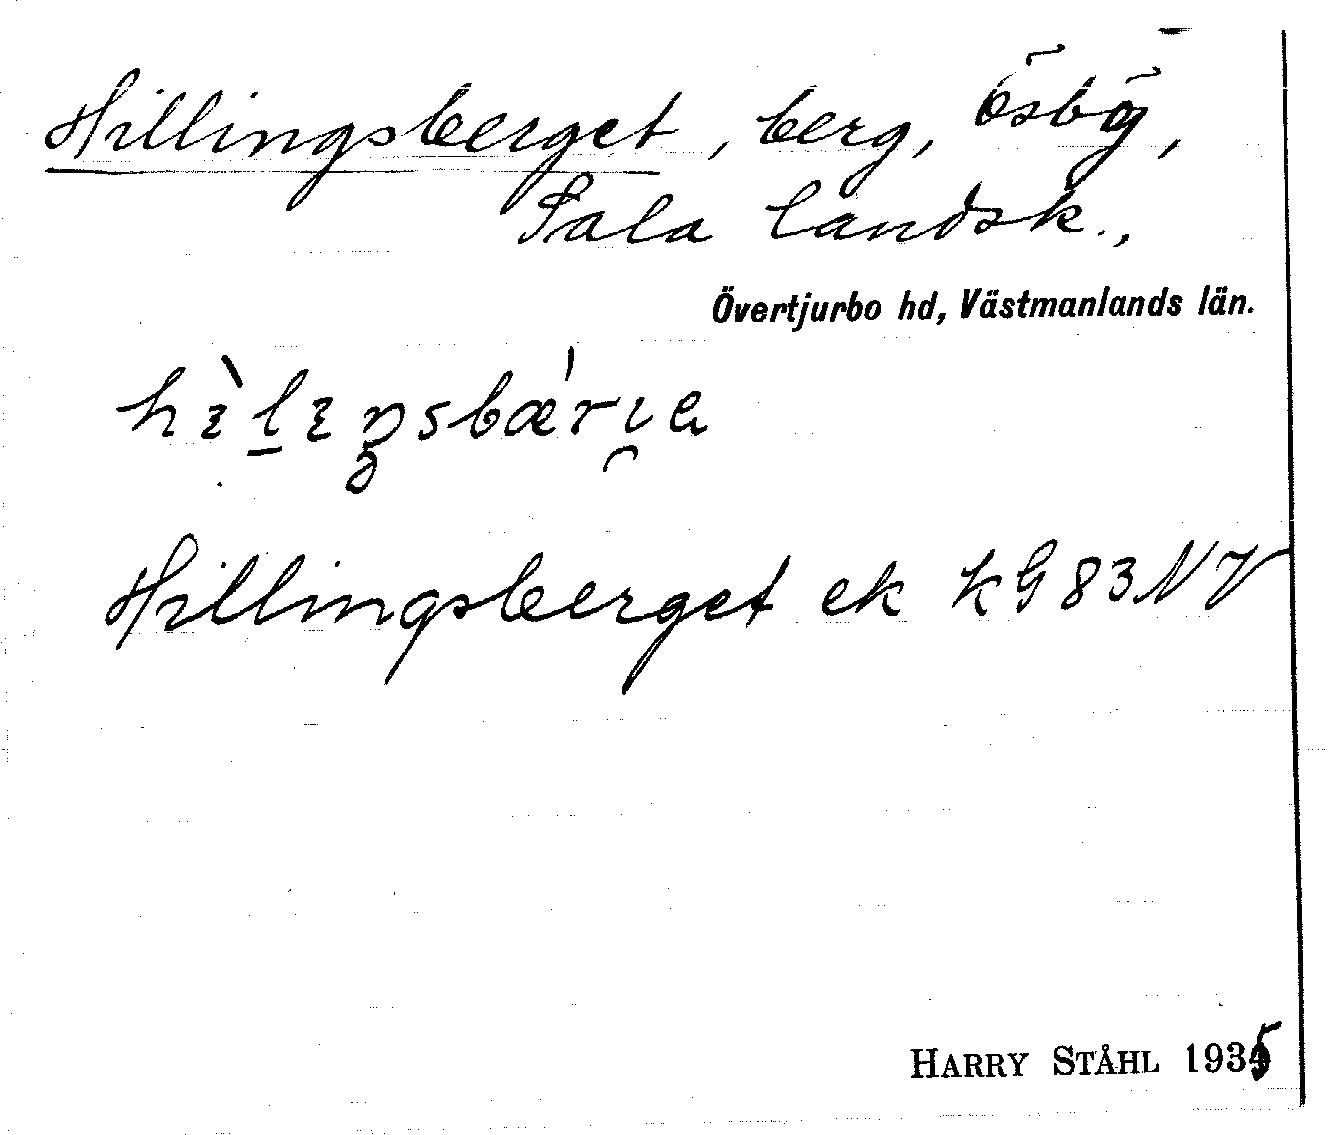 Hillingsberget, berg, Ösby,
Sala landsk.,
Övertjurbo hd, Västmanlands län.
Hillingsberget ek kG 83 NV
HARRY STÅHL 1935